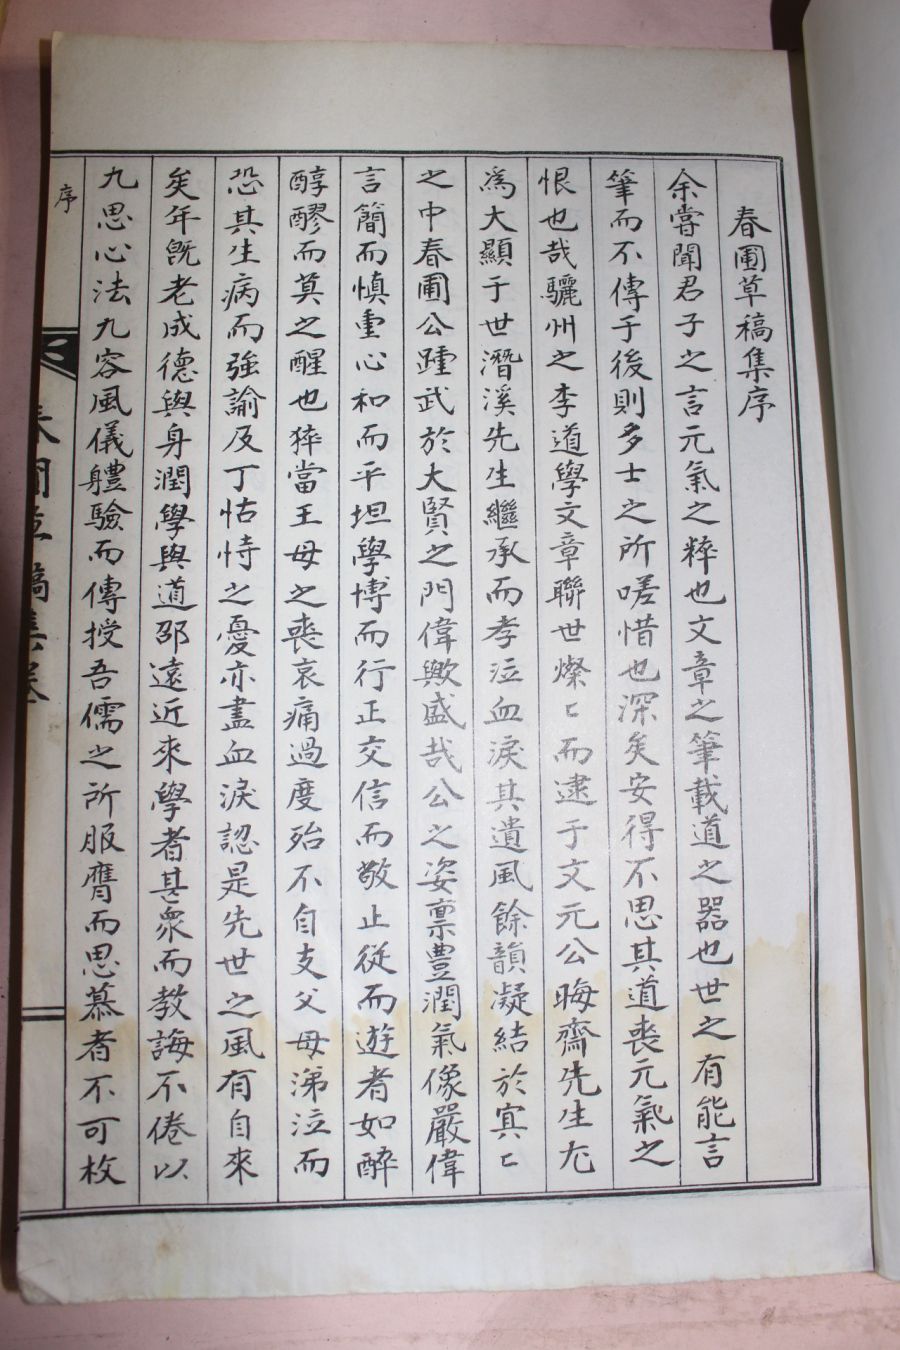 春圃草稿集序
余嘗聞君子之言元氣之粹也文章之筆載道之器也世之有能言
筆而不傳于後則多士之所嗟惜也深矣安得不思其道喪元氣之
恨也哉驪州之李道學文章聯世燦〻而逮于文元公晦齋先生尤
爲大顯于世潛溪先生繼承而孝泣血淚其遺風餘韻凝結於寘〻
之中春圃公踵武於大賢之門偉歟盛哉公之姿禀豊潤氣像嚴偉
言簡而慎重心和而平坦學博而行正交信而敬止從而遊者如醉
醇醪而莫之醒也猝當王母之喪哀痛過度殆不自支父母涕泣而
恐其生病而強諭及丁怙恃之憂亦盡血淚認是先世之風有自來
矣年旣老成德與身潤學與道邵遠近來學者甚衆而教誨不倦以
九思心法九容風儀體驗而傳授吾儒之所服膺而思慕者不可枚
序